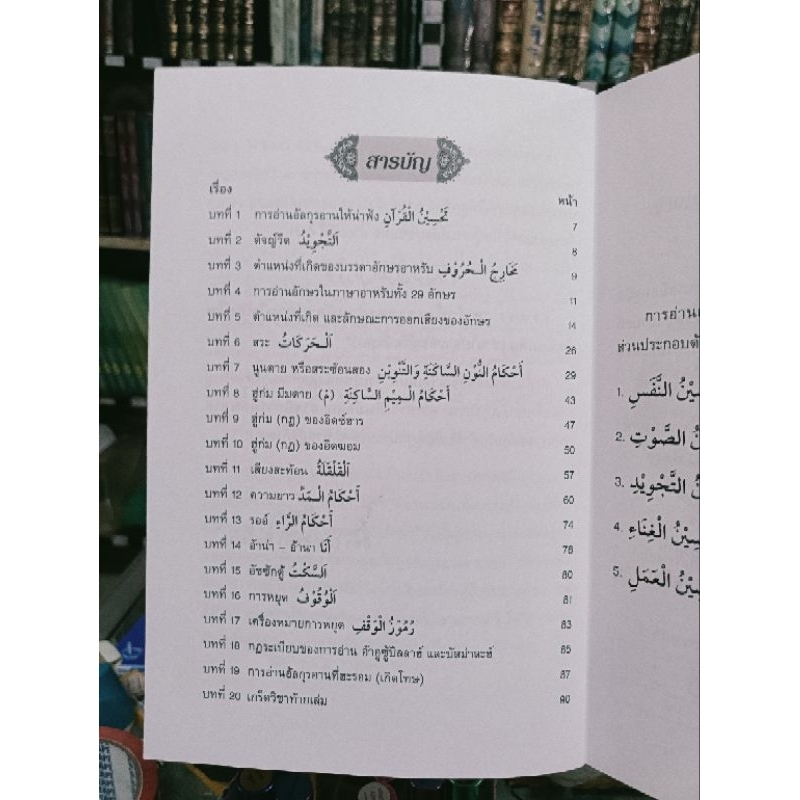 สารบัญ
เรื่อง หน้า
บทที่ 1 การอ่านอัลกุรอานให้น่าฟัง تَحْسِيْنُ الْقُرْآنِ 7
บทที่ 2 ตัจญ์วีด اَلتَّجْوِيْدُ 8
บทที่ 3 ตำแหน่งที่เกิดของบรรดาอักษรอาหรับ مَخَارِجُ الْحُرُوْفِ 9
บทที่ 4 การอ่านอักษรในภาษาอาหรับทั้ง 29 อักษร 11
บทที่ 5 ตำแหน่งที่เกิด และลักษณะการออกเสียงของอักษร 14
บทที่ 6 สระ اَلْحَرَكَاتُ 26
บทที่ 7 นูนตาย หรือสระซ้อนสอง أَحْكَامُ النُّوْنِ السَّاكِنَةِ وَالتَّنْوِيْنِ 29
บทที่ 8 ฮู่ก่ม มีมตาย (مْ) أَحْكَامُ الْمِيْمِ السَّاكِنَةِ 43
บทที่ 9 ฮู่ก่ม (กฎ) ของอิดซ์ฮาร 47
บทที่ 10 ฮู่ก่ม (กฎ) ของอิดฆอม 50
บทที่ 11 เสียงสะท้อน اَلْقَلْقَلَةُ 57
บทที่ 12 ความยาว أَحْكَامُ الْمَدِّ 60
บทที่ 13 รออ์ أَحْكَامُ الرَّاءِ 74
บทที่ 14 อ้าน่า - อ้านา أَنَا 78
บทที่ 15 อัซซักตู้ اَلسَّكْتُ 80
บทที่ 16 การหยุด اَلْوُقُوْفُ 81
บทที่ 17 เครื่องหมายการหยุด رُمُوْزُ الْوَقْفِ 83
บทที่ 18 กฎระเบียบของการอ่าน อ้าอูซู้บิลลาฮ์ และบัสม่าหะฮ์ 85
บทที่ 19 การอ่านอัลกุรอานที่ฮะรอม (เกิดโทษ) 87
บทที่ 20 เกร็ดวิชาท้ายเล่ม 90
การอ่าน
ส่วนประกอบ
1. النَّفَسِ
2. الصَّوْتِ
3. التَّجْوِيْدِ
4. الْغِنَاءِ
5. الْعَمَلِ